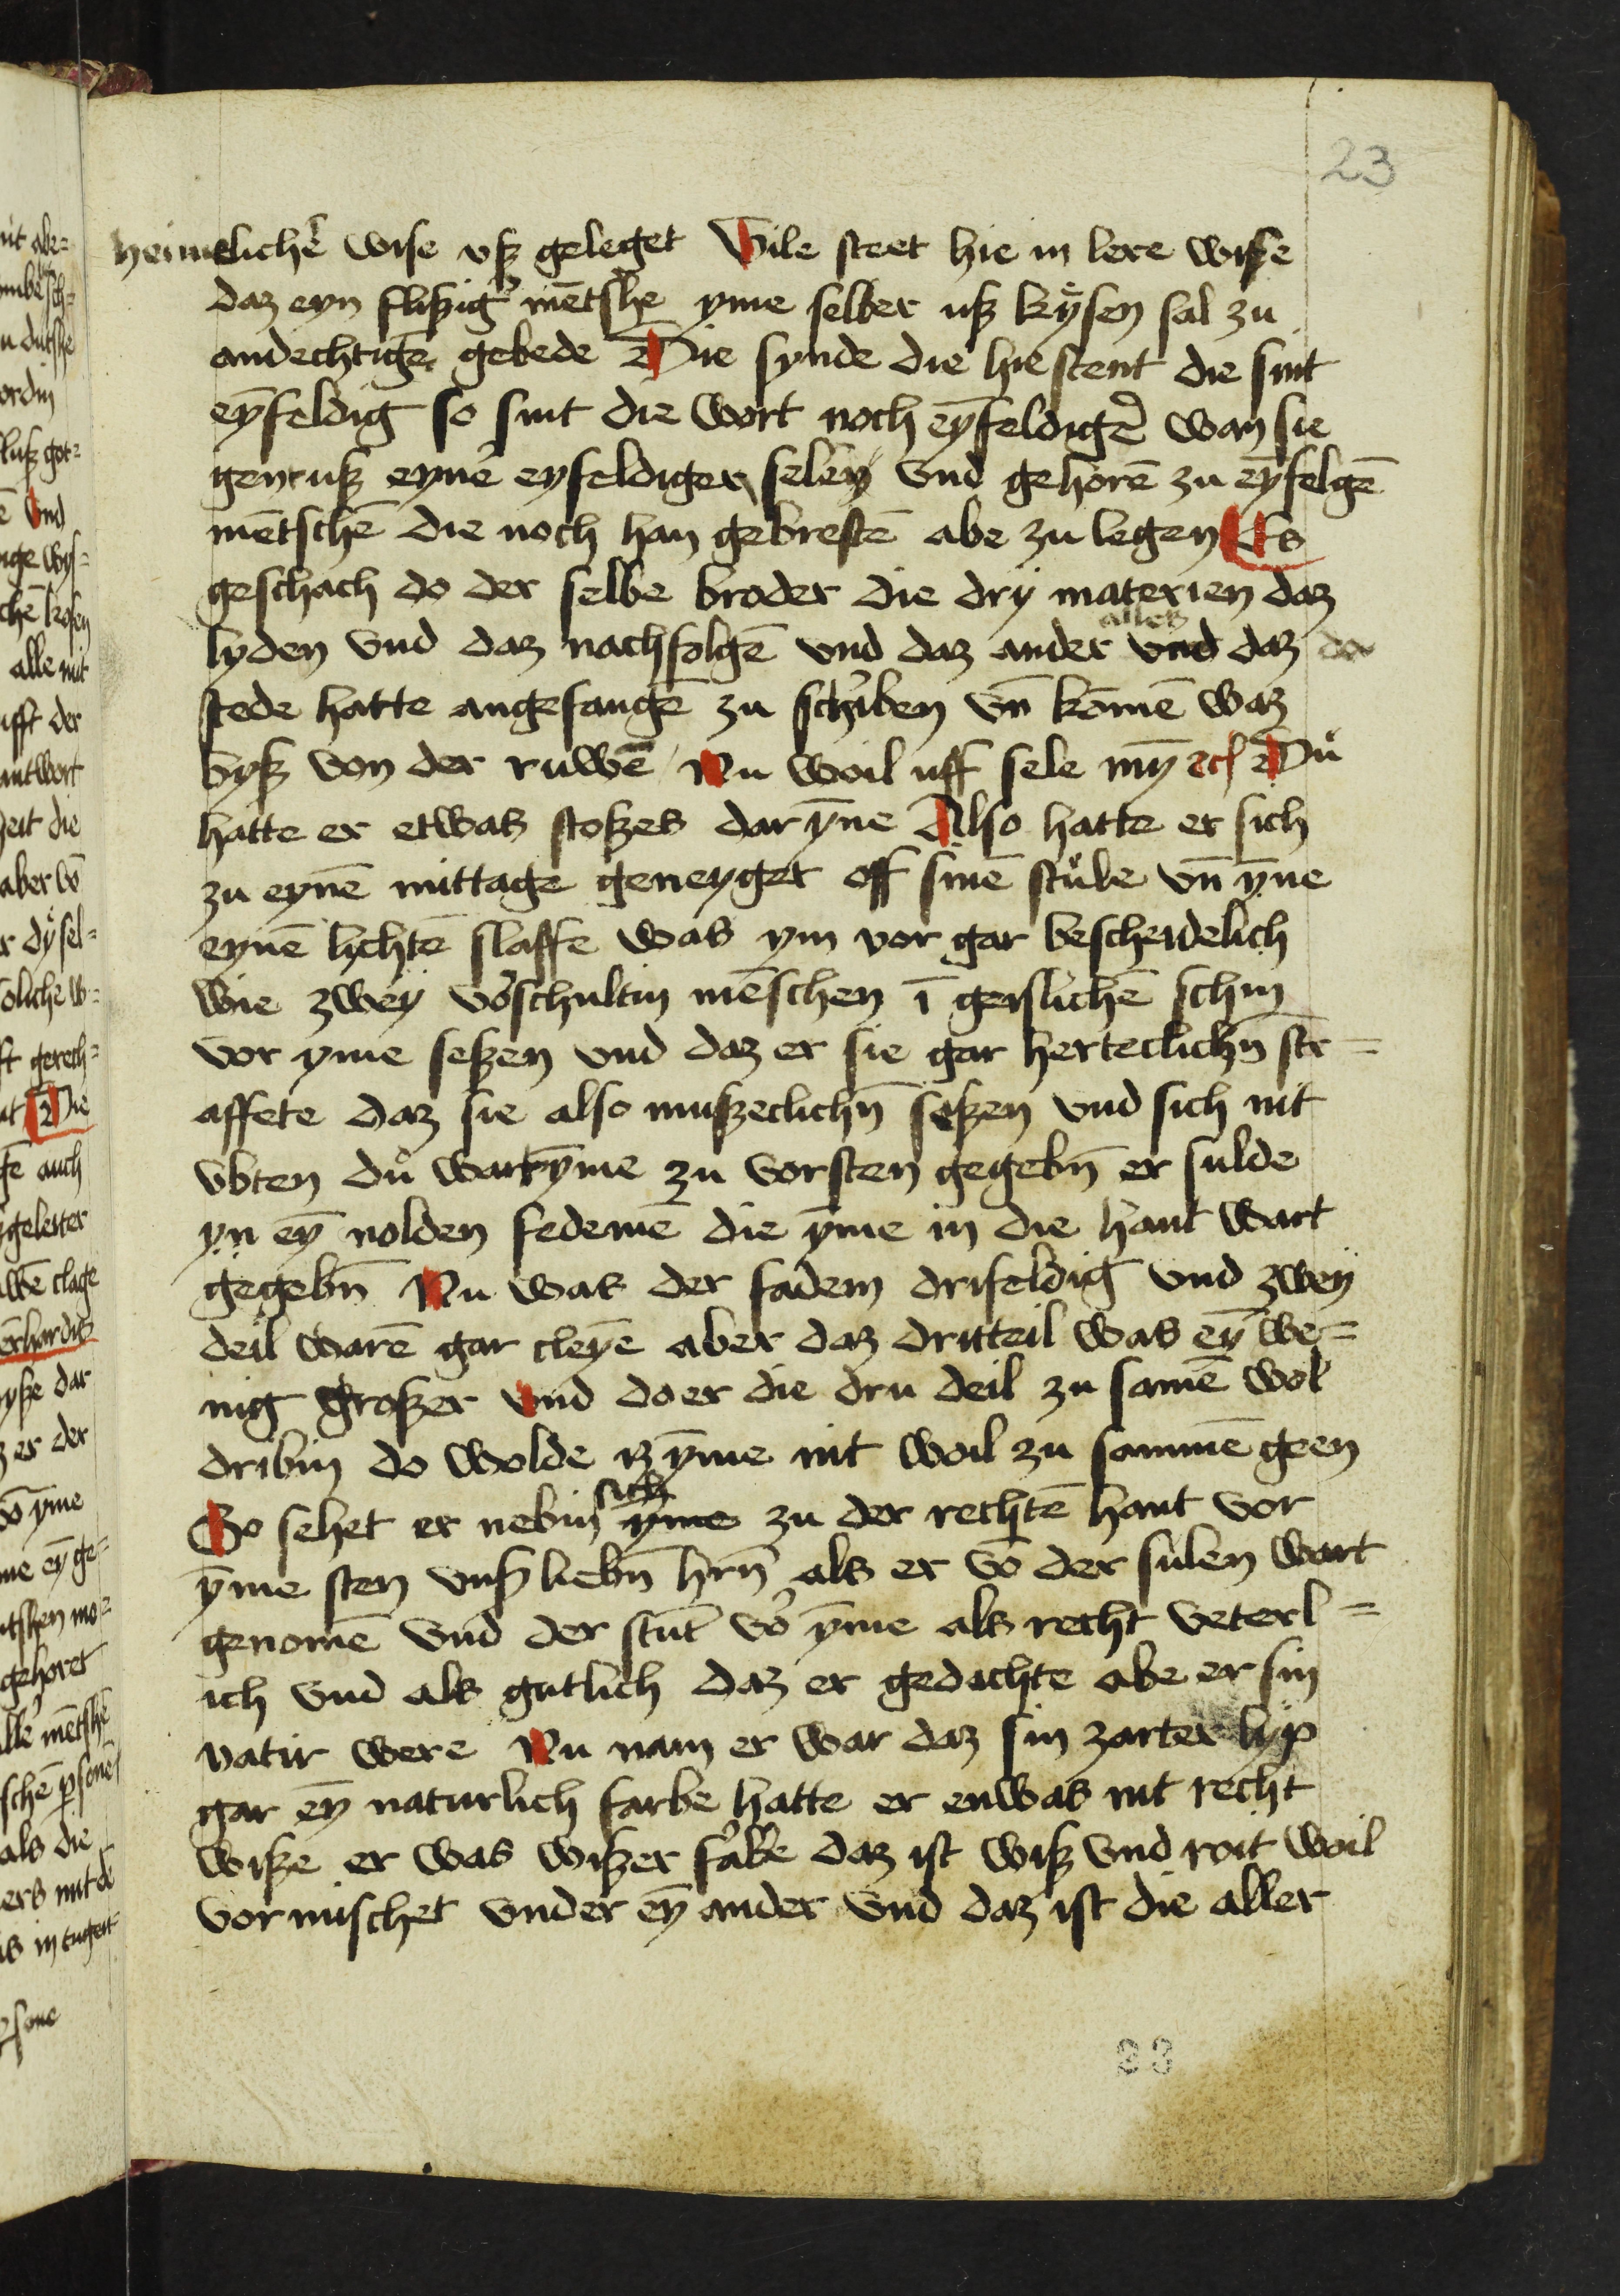 23
heimelichē wise vsz geleget Vile steet hie in lere wisze
daz eyn fliszig' mētshe yme selber usz kyͤsen sal zu
andechtigē gebede Die synde die hie stent die sint
eȳfeldig so sint die wort noch eȳfeldigē wan sie
gent usz eynē eyfeldigen selen vnd gehorē zu eȳfelgē
mētschē die noch han gebrestē abe zu legen Es
geschach do der selbe broder die dry materien daz
lyden vnd daz nachfolgē vnd daz ander alles vnd daz da
stede hatte angefangē zu schiben vn̄ komē waz
bysz von der ruwē Nu woil uff sele mȳ ecḥ Duͦ
hatte er etwas stoszes dar ȳne Also hatte er sich
zu eynē mittage geneyget off sinē stuͦle vn̄ ȳne
eynē lichtē slaffe was ym vor gar bescheidelich
wie zwey v'schultin mēschen ī geislichē schin
vor yme seszen vnd daz er sie gar herteclichn̄ str=
affete daz sie also muszeclichn̄ seszen vnd sich nit
vbten duͦ wart ȳme zu vorsten gegebn̄ er sulde
yn eȳ nolden fedemē die ȳme in die hant wart
gegebn̄ Nu was der fadem drifeldig vnd zwey
deil warē gar cleyē aber daz dritteil was eȳ we=
nig groszer vnd do er die dru deil zu samē wol
dribin do wolde iz ȳme nit woil zu sammē geen
So sehet er nebin sich yme zu der rechtē hant vor
ȳme sten vnsz liebn̄ hrn̄ als er vō der sulen wart
genomē vnd der stūt vo' ȳme als recht veterl=
ich vnd als gutlich daz er gedachte abe er sin
vatir were Nu nam er war daz sin zarter lyp
gar eȳ naturlich farbe hatte er enwas nit recht
wisze er was wiszer fa'be daz ist wisz vnd roit woil
vormischet vnder eȳ ander vnd daz ist die aller
23